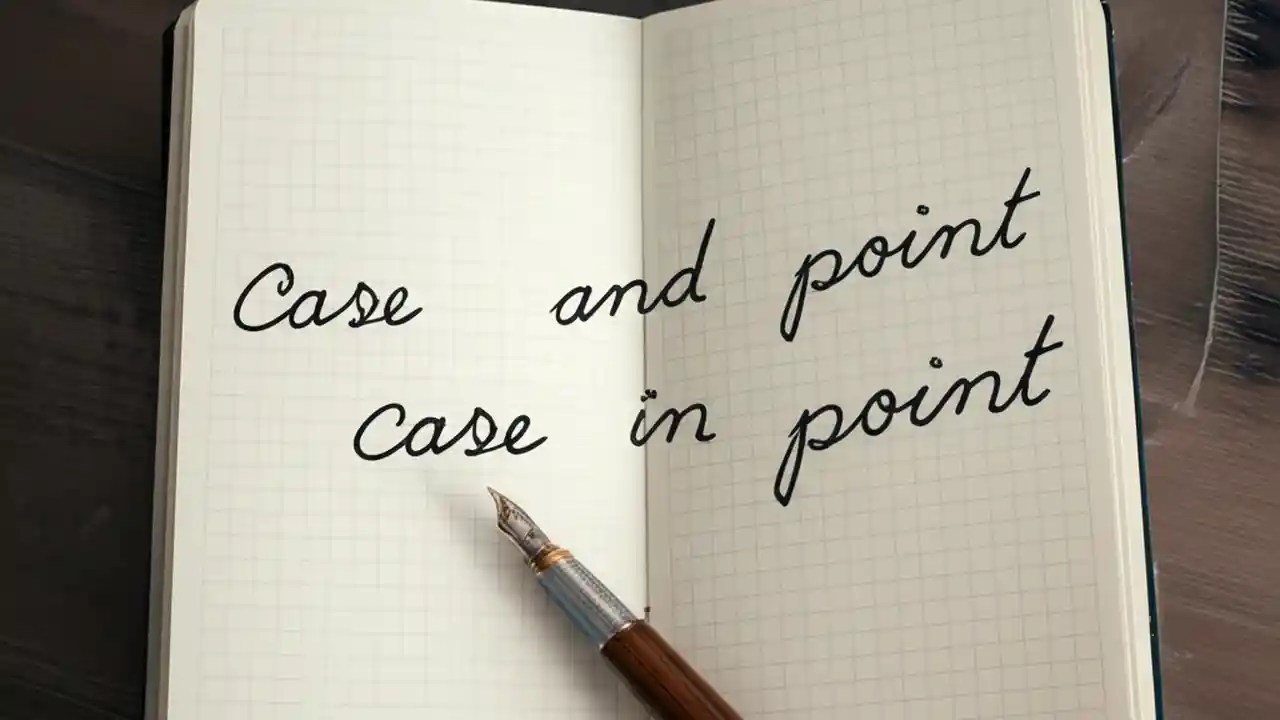 Case and point
case in point